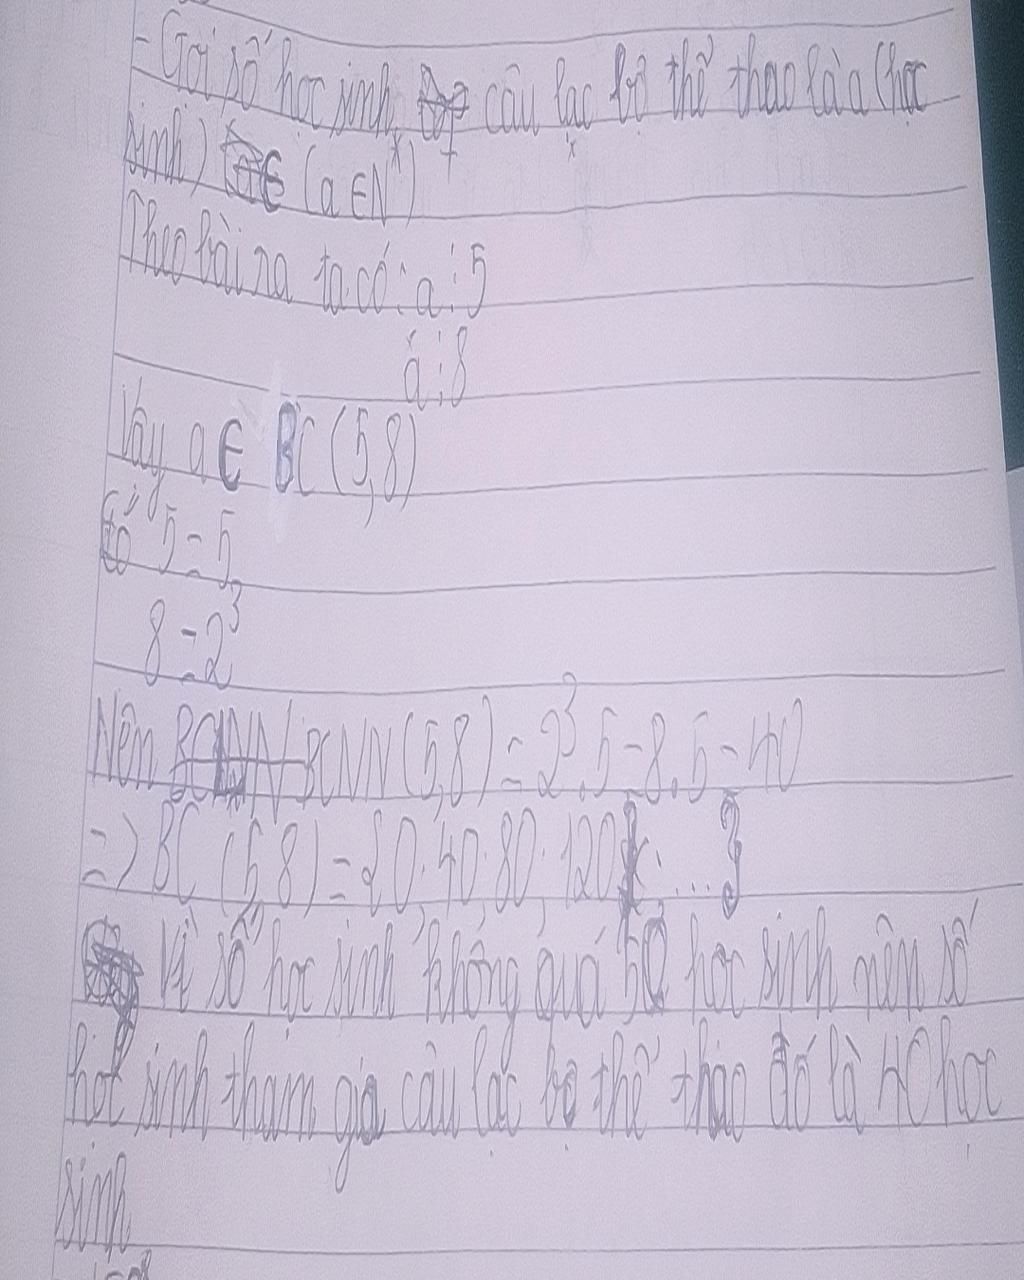 - Gọi số học sinh câu lạc bộ thể thao là a (học
sinh) (a ∈ N*)
Theo bài ra ta có: a ⋮ 5
a ⋮ 8
Vậy a ∈ BC (5,8)
có 5 = 5
8 = 2³
Nên BCNN (5,8) = 2³.5 = 8.5 = 40
=> BC (5,8) = {0; 40; 80; 120; ...}
Vì số học sinh không quá 50 học sinh nên số
học sinh tham gia câu lạc bộ thể thao đó là 40 học
sinh